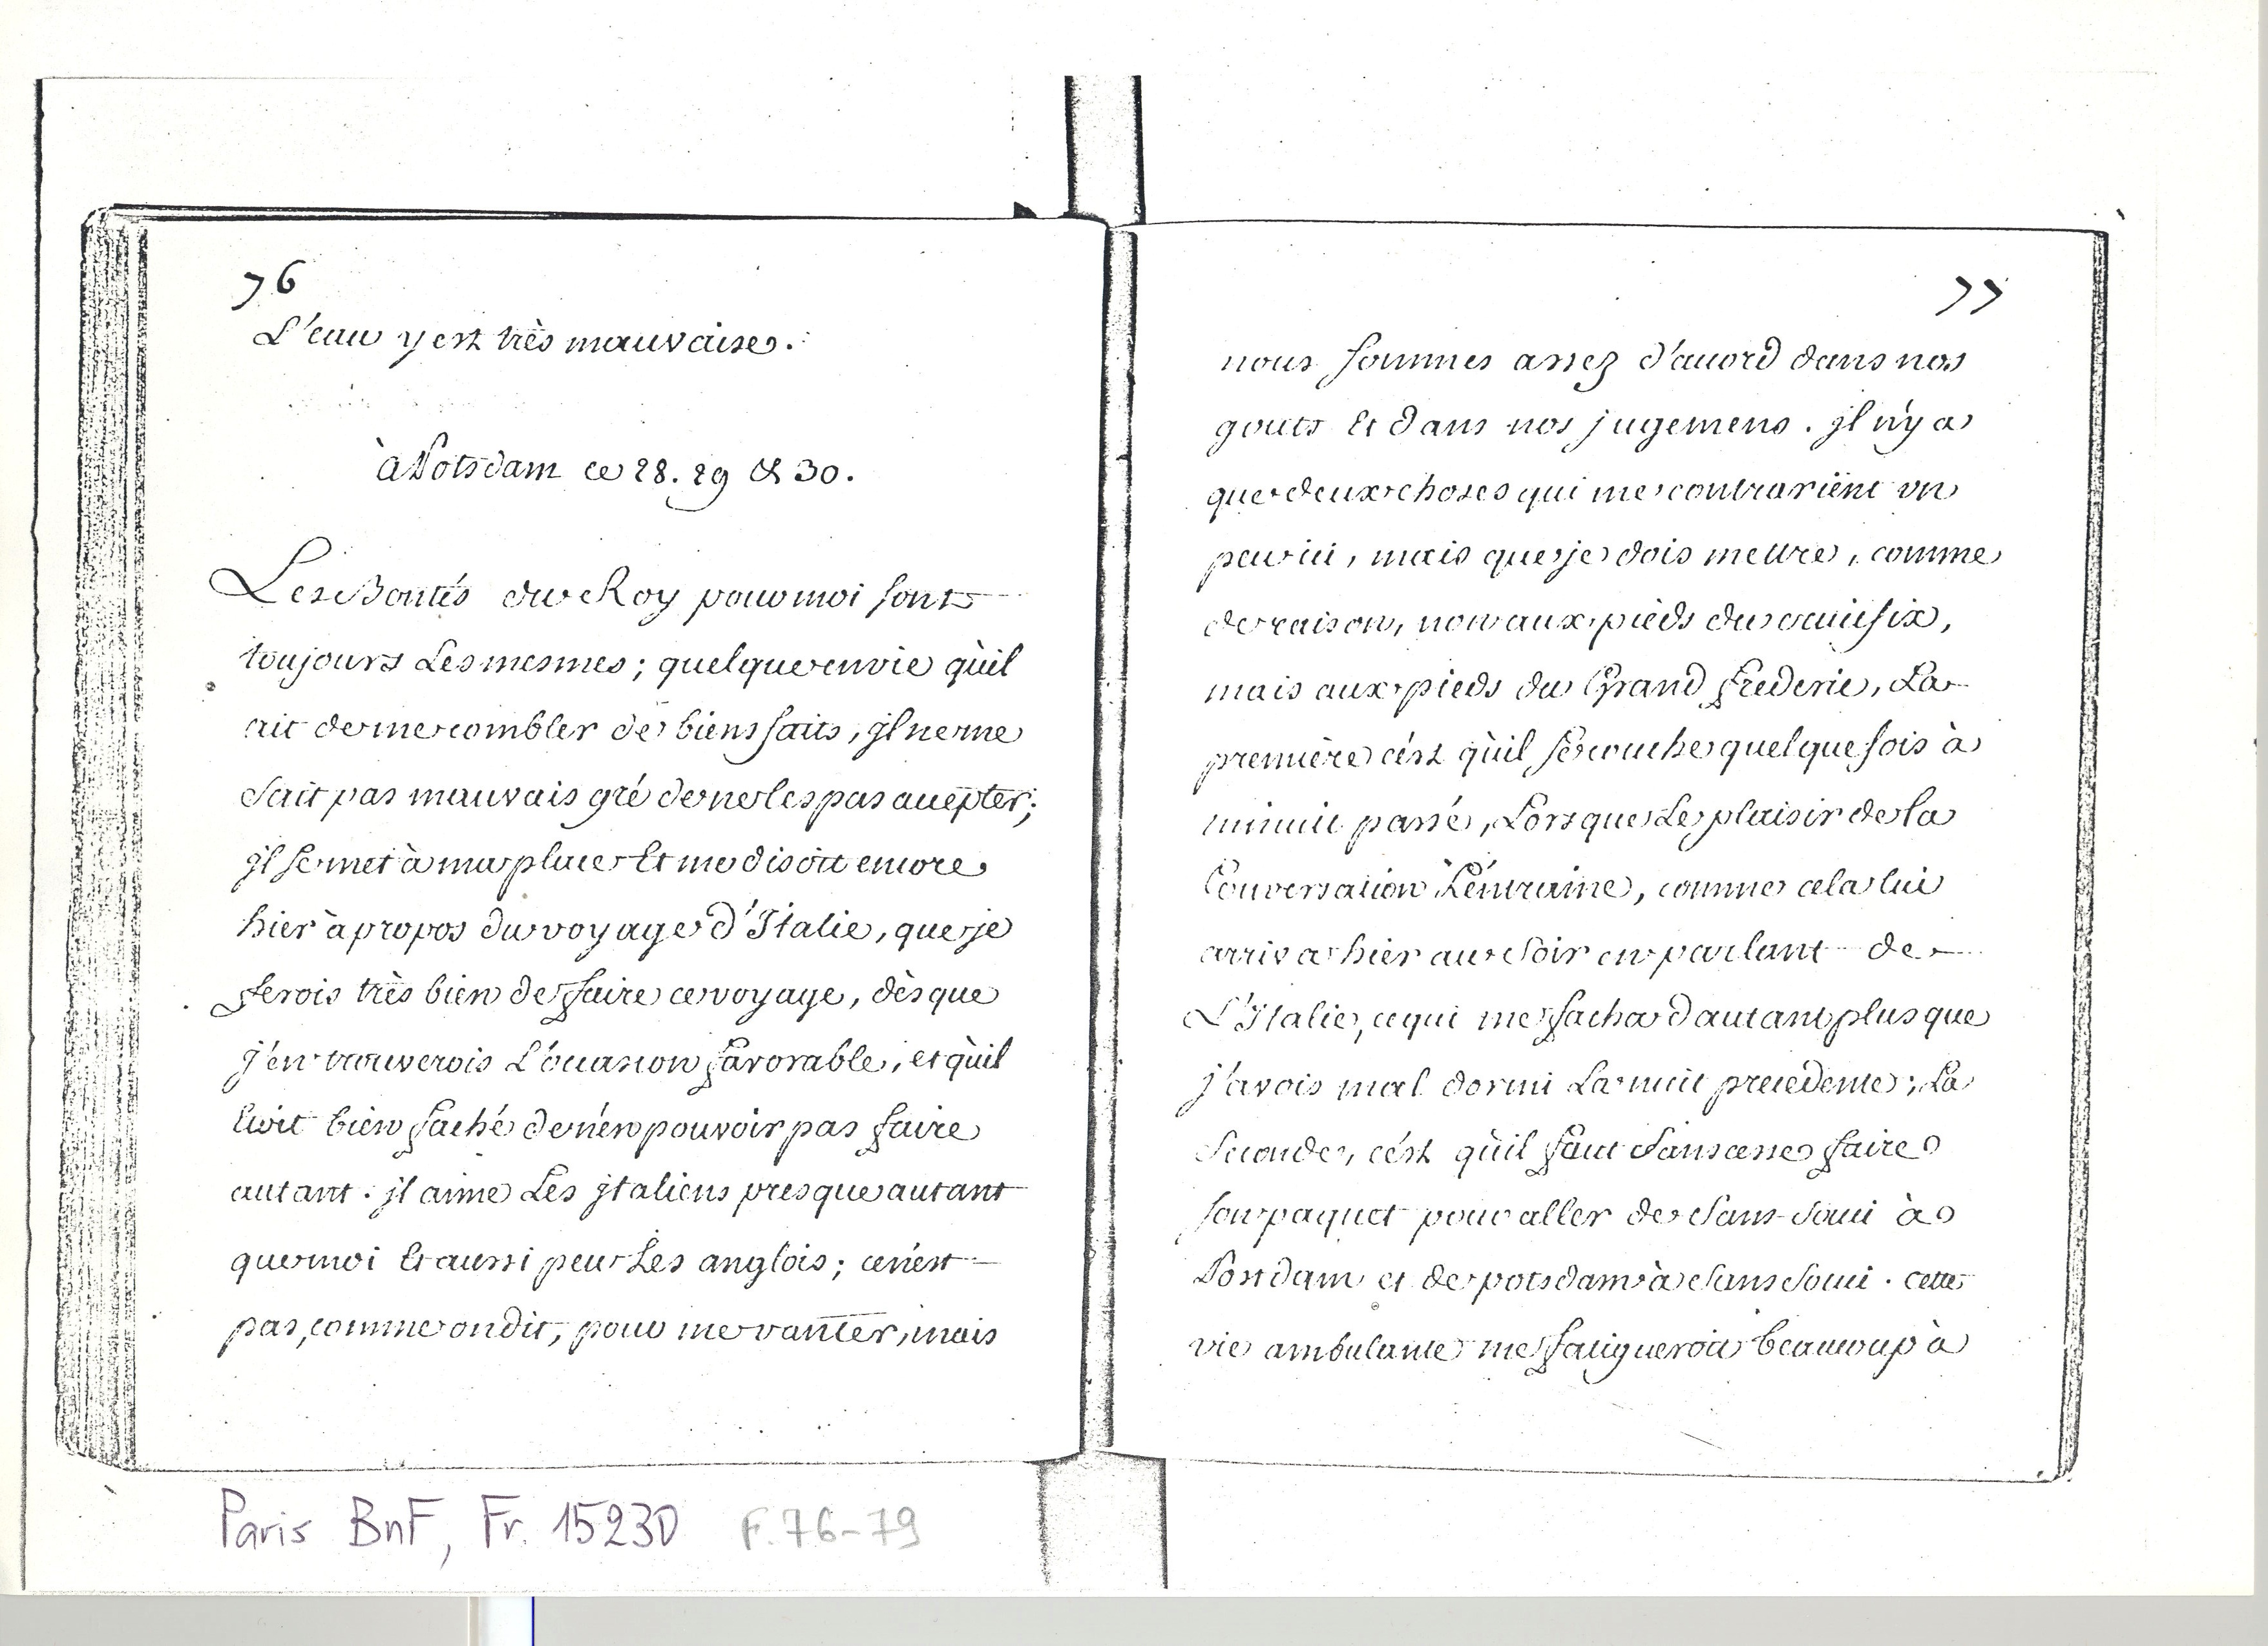 76
L'eau y est très mauvaise.
à Potsdam ce 28. 29 & 30.
Les Bontés du Roy pour moi sont
toujours Les mesmes ; quelque envie qu'il
ait de me combler de biensfaits, jl ne me
sait pas mauvais gré de ne les pas accepter ;
jl se met à ma place Et me disoit encore
hier à propos du voyage d'Italie, que je
ferois très bien de faire ce voyage, dès que
j'en trouverois L'occasion favorable, et qu'il
Etoit bien faché de n'en pouvoir pas faire
autant . jl aime Les jtaliens presque autant
que moi Et aussi peu Les anglois ; ce n'est
pas, comme on dit, pour me vanter, mais
77
nous sommes assez d'accord dans nos
gouts Et dans nos jugemens . jl n'y a
que deux choses qui me contrarient un
peu ici, mais que je dois mettre, comme
de raison, non aux pieds du crucifix,
mais aux pieds du Grand frederic, La
première c'est qu'il se couche quelque fois à
minuit passé, Lorsque Le plaisir de la
Conversation L'entraine, comme cela lui
arriva hier au soir en parlant de
L'Italie, ce qui me facha d'autant plus que
j'avois mal dormi La nuit precedente ; La
seconde, c'est qu'il faut sans cesse faire
son paquet pour aller de sans-souci à
Postdam et de potsdam à sans souci . cette
vie ambulante me fatigueroit beaucoup à
Paris BnF, Fr. 15230 F. 76-79